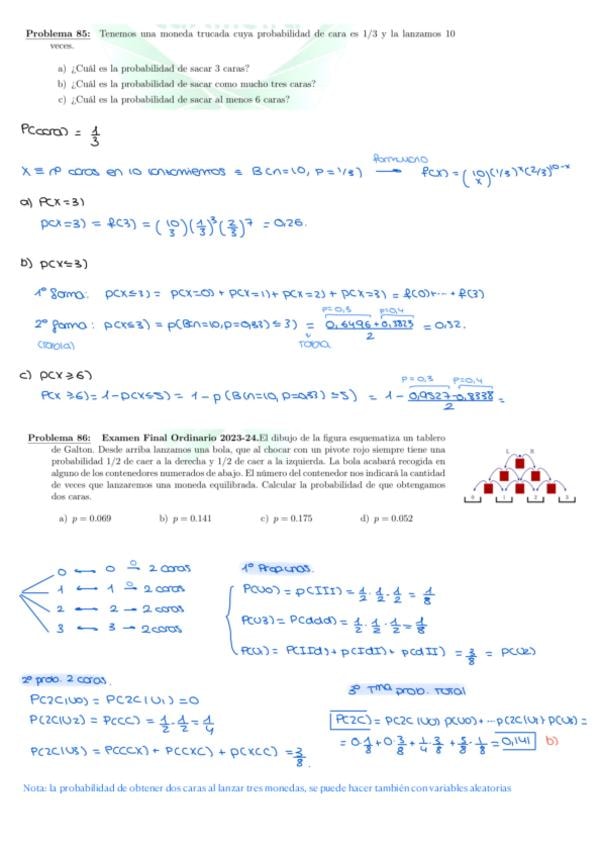 Problema 85: Tenemos una moneda trucada cuya probabilidad de cara es 1/3 y la lanzamos 10
veces.
a) ¿Cuál es la probabilidad de sacar 3 caras?
b) ¿Cuál es la probabilidad de sacar como mucho tres caras?
c) ¿Cuál es la probabilidad de sacar al menos 6 caras?
P(cara) = 1/3
X ≡ nº caras en 10 lanzamientos ≡ B(n=10, p=1/3) → formulario f(x) = (10 x)(1/3)^x(2/3)^10-x
a) P(X=3)
P(X=3) = f(3) = (10 3)(1/3)^3(2/3)^7 = 0,26.
b) P(X≤3)
1ª forma: P(X≤3) = P(X=0) + P(X=1) + P(X=2) + P(X=3) = f(0)+···+ f(3)
p=0,3 p=0,4
2ª forma: P(X≤3) = P(B(n=10, p=0,33) ≤ 3) = 0,6496+0,3823 / 2 = 0,52.
(tabla) tabla
c) P(X≥6)
p=0,3 p=0,4
P(X≥6) = 1-P(X≤5) = 1-P(B(n=10, p=0,33) ≤5) = 1 - 0,9527-0,8338 / 2 =
Problema 86: Examen Final Ordinario 2023-24.El dibujo de la figura esquematiza un tablero
de Galton. Desde arriba lanzamos una bola, que al chocar con un pivote rojo siempre tiene una
probabilidad 1/2 de caer a la derecha y 1/2 de caer a la izquierda. La bola acabará recogida en
alguno de los contenedores numerados de abajo. El número del contenedor nos indicará la cantidad
de veces que lanzaremos una moneda equilibrada. Calcular la probabilidad de que obtengamos
dos caras.
0 1 2 3
a) p = 0.069 b) p = 0.141 c) p = 0.175 d) p = 0.052
0 ↔ 0 →0 2 caras
1 ↔ 1 →0 2 caras
2 ↔ 2 → 2 caras
3 ↔ 3 → 2 caras
1º Prop urnas.
P(U0) = P(III) = 1/2 · 1/2 · 1/2 = 1/8
P(U3) = P(ddd) = 1/2 · 1/2 · 1/2 = 1/8
P(U1) = P(IId) + P(IdI) + P(dII) = 3/8 = P(U2)
2º prob. 2 caras.
P(2C|U0) = P(2C|U1) = 0
P(2C|U2) = P(CC) = 1/2 · 1/2 = 1/4
P(2C|U3) = P(CCX) + P(CXC) + P(XCC) = 3/8.
3º Tma prob. Total
P(2C) = P(2C|U0) P(U0) + ··· P(2C|U3) P(U3) =
= 0· 1/8 + 0· 3/8 + 1/4 · 3/8 + 3/8 · 1/8 = 0,141 b)
Nota: la probabilidad de obtener dos caras al lanzar tres monedas, se puede hacer también con variables aleatorias